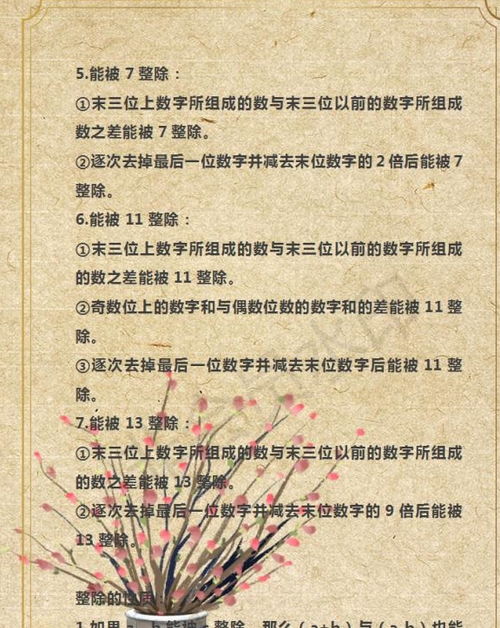 5.能被 7 整除：
①末三位上数字所组成的数与末三位以前的数字所组成
数之差能被 7 整除。
②逐次去掉最后一位数字并减去末位数字的 2 倍后能被 7
整除。
6.能被 11 整除：
①末三位上数字所组成的数与末三位以前的数字所组成
的数之差能被 11 整除。
②奇数位上的数字和与偶数位数的数字和的差能被 11 整
除。
③逐次去掉最后一位数字并减去末位数字后能被 11 整
除。
7.能被 13 整除：
①末三位上数字所组成的数与末三位以前的数字所组成
的数之差能被 13 整除。
②逐次去掉最后一位数字并减去末位数字的 9 倍后能被
13 整除。
整除的性质：
1.如果 a、b 能被 c 整除，那么（a+b）与（a-b）也能